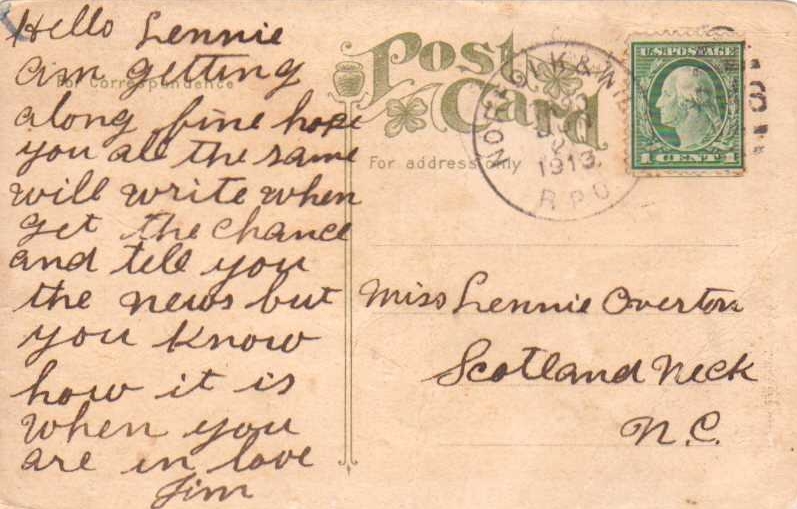 Hello Lennie
am getting
For Correspondence
along fine hope
you all the same
will write when
get the chance
and tell you
the news but
you know
how it is
when you
are in love
Jim
Post
Card
For address only
1913
R P O
U.S. POSTAGE
1 CENT 1
Miss Lennie Overton
Scotland Neck
N.C.